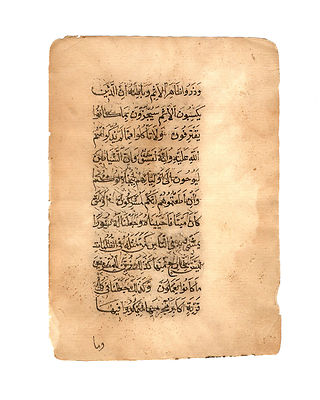 وذروا ظاهر الاثم وباطنه ان الذين
يكسبون الاثم سيجزون بما كانوا
يقترفون ولا تاكلوا مما لم يذكر اسم
الله عليه وانه لفسق وان الشياطين
ليوحون الى اوليائهم ليجادلوكم
وان اطعتموهم انكم لمشركون اومن
كان ميتا فاحييناه وجعلنا له نورا
يمشي به في الناس كمن مثله في الظلمات
ليس بخارج منها كذلك زين للكافرين
ما كانوا يعملون وكذلك جعلنا في كل
قرية اكابر مجرميها ليمكروا فيها
وما